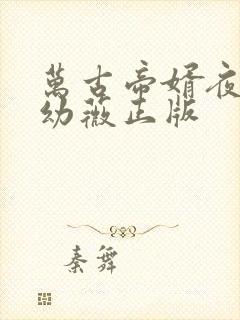 萬古帝婿夜
幼薇正版
秦舞